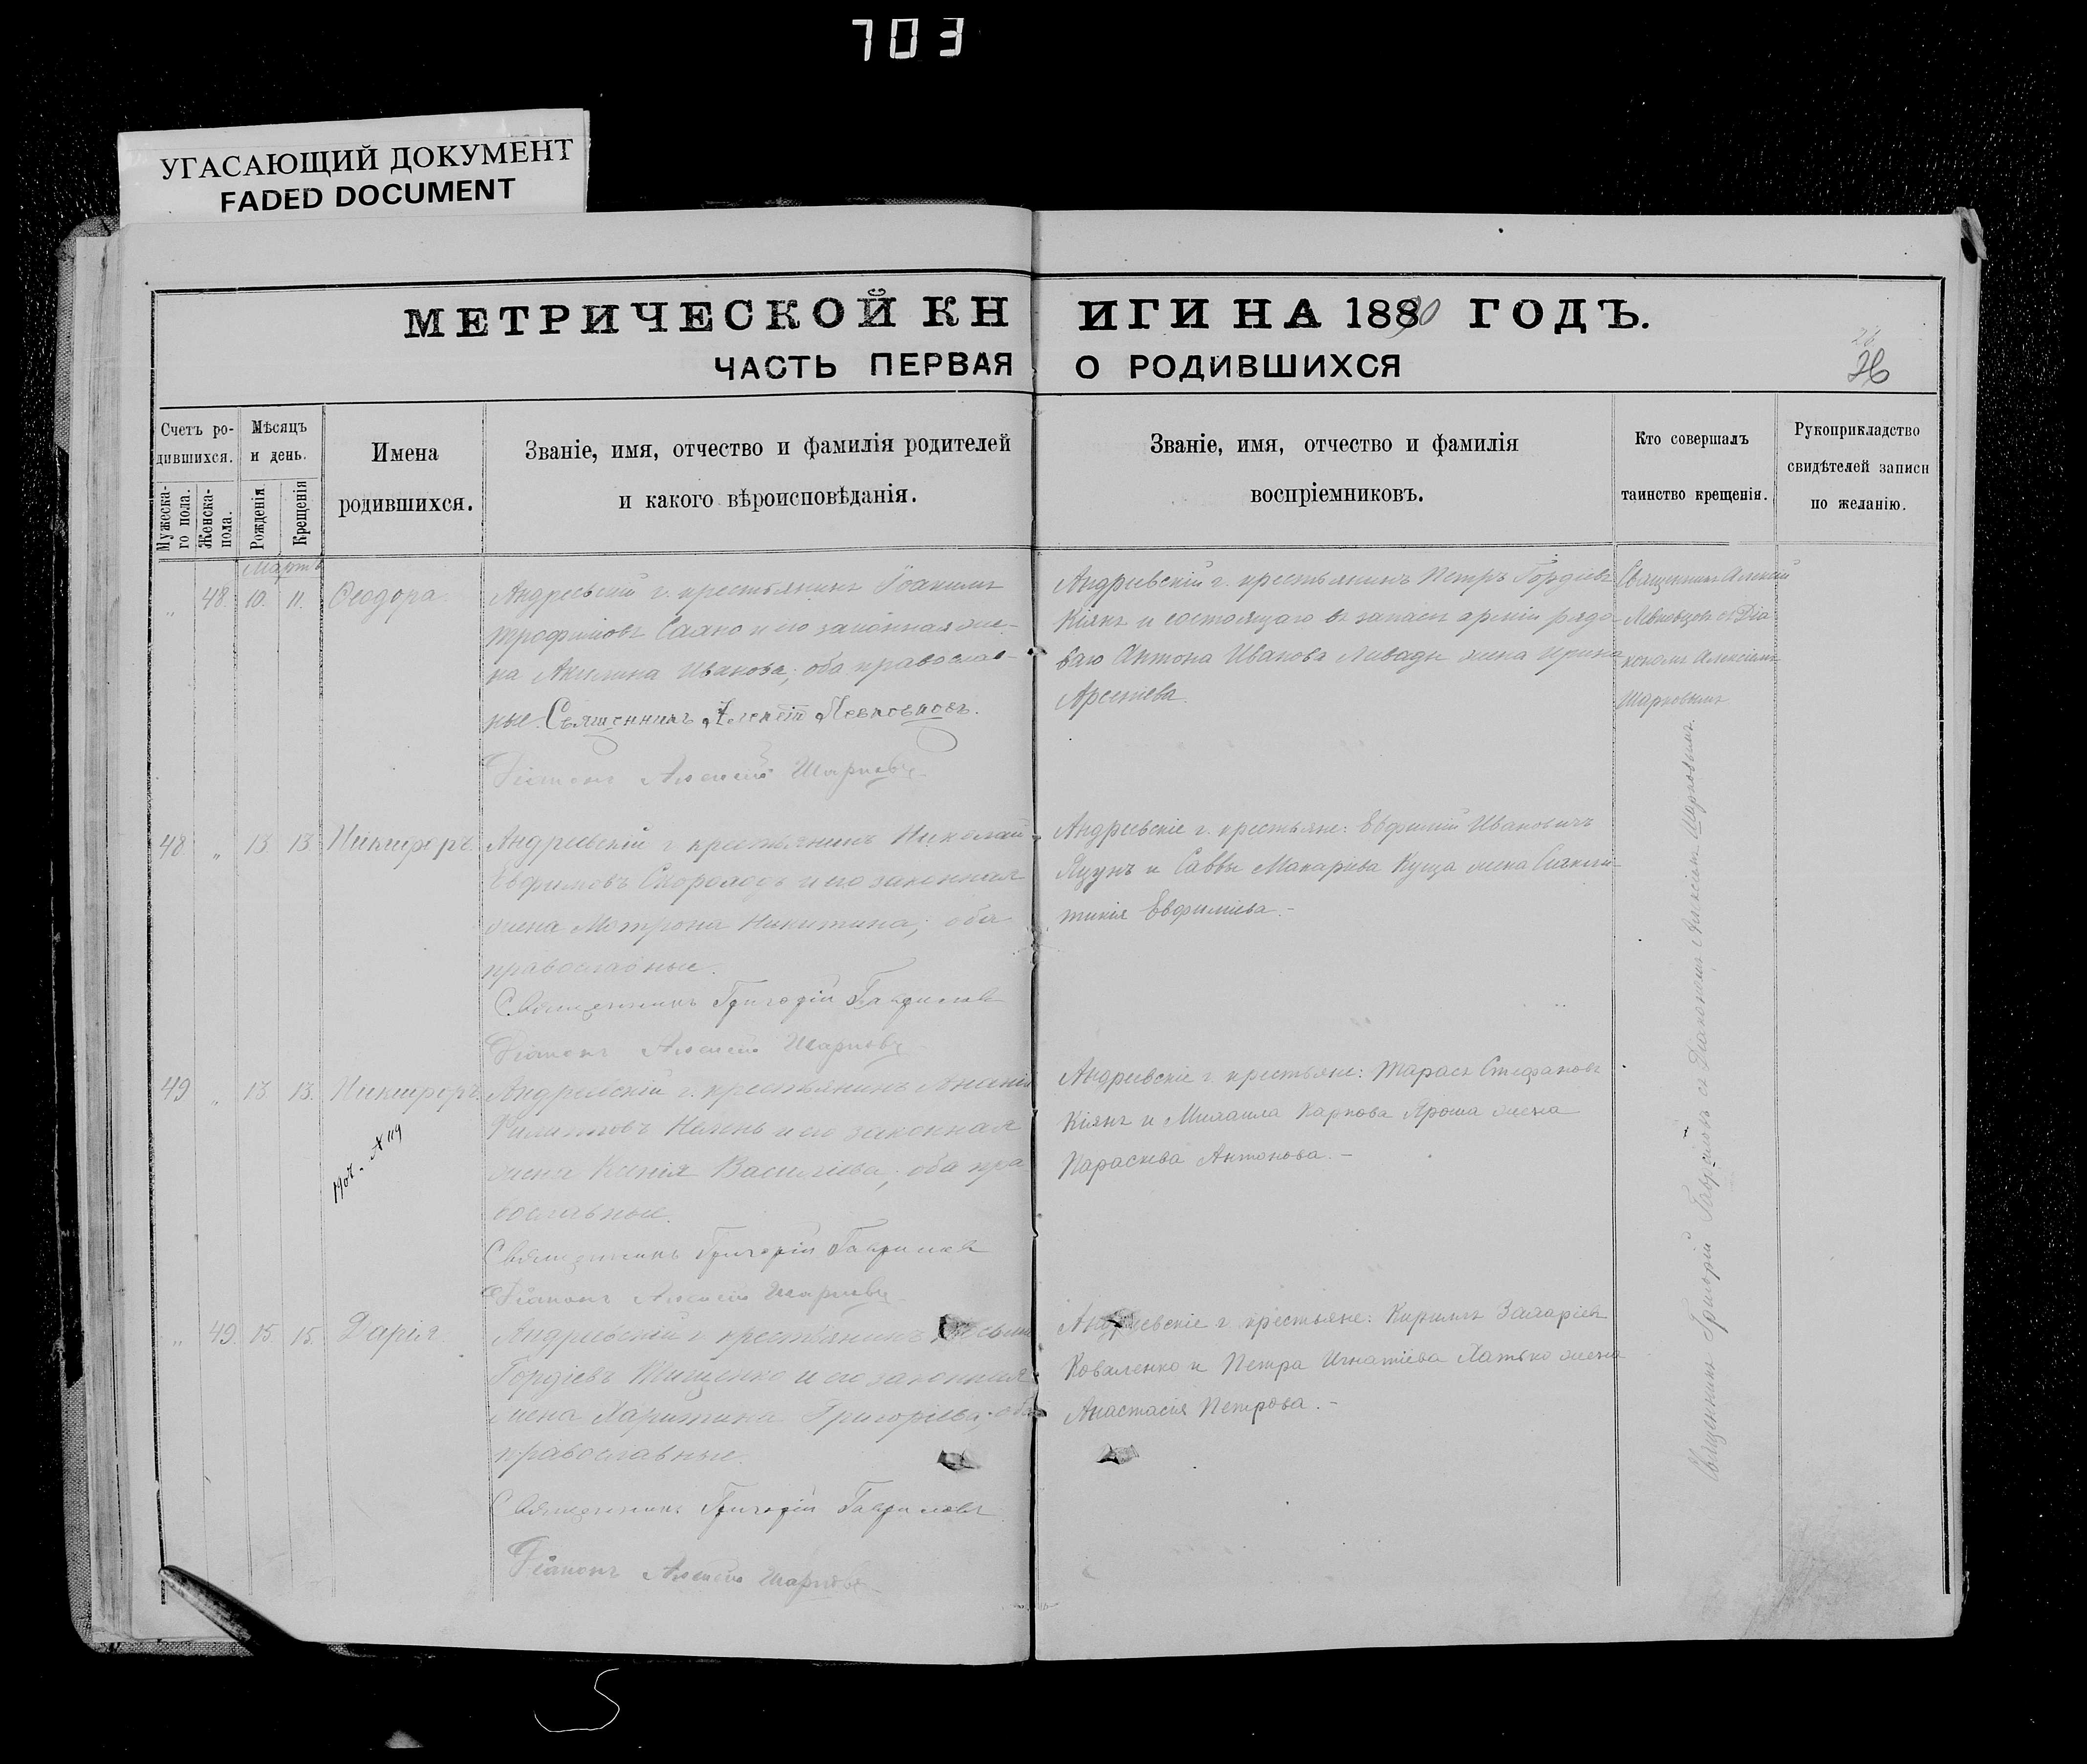 703
УГАСАЮЩИЙ ДОКУМЕНТ
FADED DOCUMENT
МЕТРИЧЕСКОЙ КНИГИ НА 1890 ГОДЪ.
ЧАСТЬ ПЕРВАЯ О РОДИВШИХСЯ
26
26
Счетъ ро-
дившихся.
Мужеска-
го пола.
Женска-
пола.
Мѣсяцъ
и день.
Рожденія
Крещенія
Имена
родившихся.
Званіе, имя, отчество и фамилія родителей
и какого вѣроисповѣданія.
Званіе, имя, отчество и фамилія
воспріемниковъ.
Кто совершалъ
таинство крещенія.
Рукоприкладство
свидѣтелей записи
по желанію.
Мартъ
„ 48. 10. 11. Ѳеодора.
Андреевскій г. крестьянинъ Іоакимъ
Трофимовъ и его законная же-
на Акилина Иванова; оба православ-
ные. Священникъ Алексій Левковцовъ.
Діаконъ Алексій Шарковъ
Андреевскій г. крестьянинъ Петръ Гордіевъ
Кіянъ и состоящаго въ запасѣ арміи рядо-
ваго Антона Иванова Ливады жена Ирина
Арсеніева.
Священникъ Алексій
Левковцовъ съ Діа-
кономъ Алексіемъ
Шарковымъ
48 „ 13. 13 Никифоръ.
Андреевскій г. крестьянинъ Николай
Евфимовъ Скороходъ и его законная
жена Мотрона Никитина; оба
православные.
Священникъ Григорій Гавриловъ
Діаконъ Алексій Шарковъ
Андреевскіе г. крестьяне: Евфимій Ивановичъ
Яцунъ и Саввы Макаріева Куща жена
Евфиміева. –
49 „ 13 13. Никифоръ.
1908. № 119
Андреевскій г. крестьянинъ Ананій
Филипповъ и его законная
жена Ксенія Василіева; оба пра
вославные.
Священникъ Григорій Гавриловъ
Діаконъ Алексій Шарковъ
Андреевскіе г. крестьяне: Тарасъ Стефановъ
Кіянъ и Михаила Карпова Яроша жена
Параскева Антонова. –
„ 49. 15. 15. Дарія
Андреевскій г. крестьянинъ
Гордіевъ Тищенко и его законная
жена Харитина Григоріева; оба
православные.
Священникъ Григорій Гавриловъ
Діаконъ Алексій Шарковъ
Андреевскіе г. крестьяне: Кириллъ Захаріевъ
Коваленко и Петра Игнатіева Хатько жена
Анастасія Петрова. –
Священникъ Григорій Гавриловъ съ Діакономъ Алексіемъ Шарковымъ.